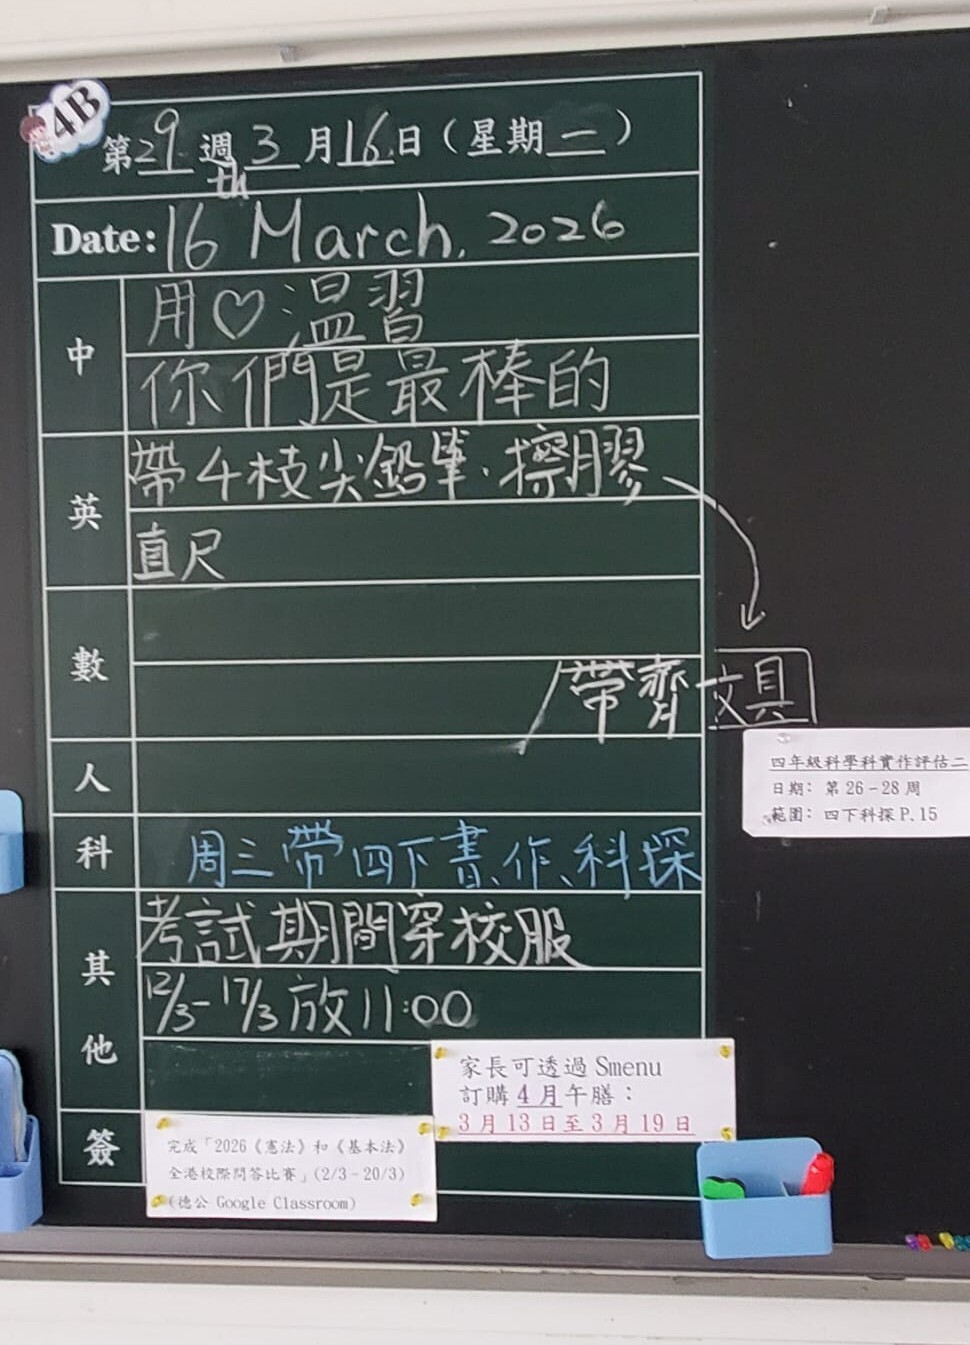 4B
第29週3月16日（星期一）
Date: 16th March, 2026
中
用♡溫習
你們是最棒的
英
帶4枝尖鉛筆、擦膠
直尺
數
帶齊文具
人
科
周三帶四下書、作、科探
其他
考試期間穿校服
12/3-17/3放11:00
簽
四年級科學科實作評估二
日期：第26-28周
範圍：四下科探P.15
家長可透過Smenu
訂購4月午膳：
3月13日至3月19日
完成「2026《憲法》和《基本法》
全港校際問答比賽」(2/3-20/3)
(德公 Google Classroom)